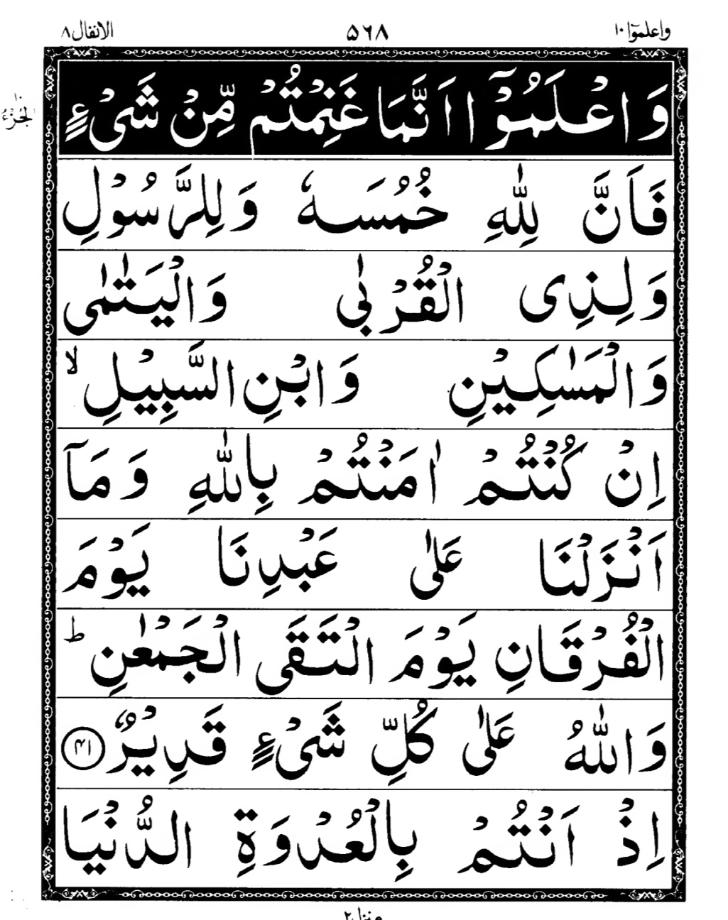 واعلموٓا ١٠
۵٦٨
الانفال ٨
وَاعْلَمُوْۤا اَنَّمَا غَنِمْتُمْ مِّنْ شَیْءٍ
١٠
الجزء
فَاَنَّ لِلّٰهِ خُمُسَهٗ وَلِلرَّسُوْلِ
وَلِذِی الْقُرْبٰی وَالْیَتٰمٰی
وَالْمَسٰكِیْنِ وَابْنِ السَّبِیْلِ ۙ
اِنْ كُنْتُمْ اٰمَنْتُمْ بِاللّٰهِ وَمَاۤ
اَنْزَلْنَا عَلٰی عَبْدِنَا یَوْمَ
الْفُرْقَانِ یَوْمَ الْتَقَی الْجَمْعٰنِ ؕ
وَاللّٰهُ عَلٰی كُلِّ شَیْءٍ قَدِیْرٌ ﴿۴۱﴾
اِذْ اَنْتُمْ بِالْعُدْوَةِ الدُّنْیَا
منزل ٢